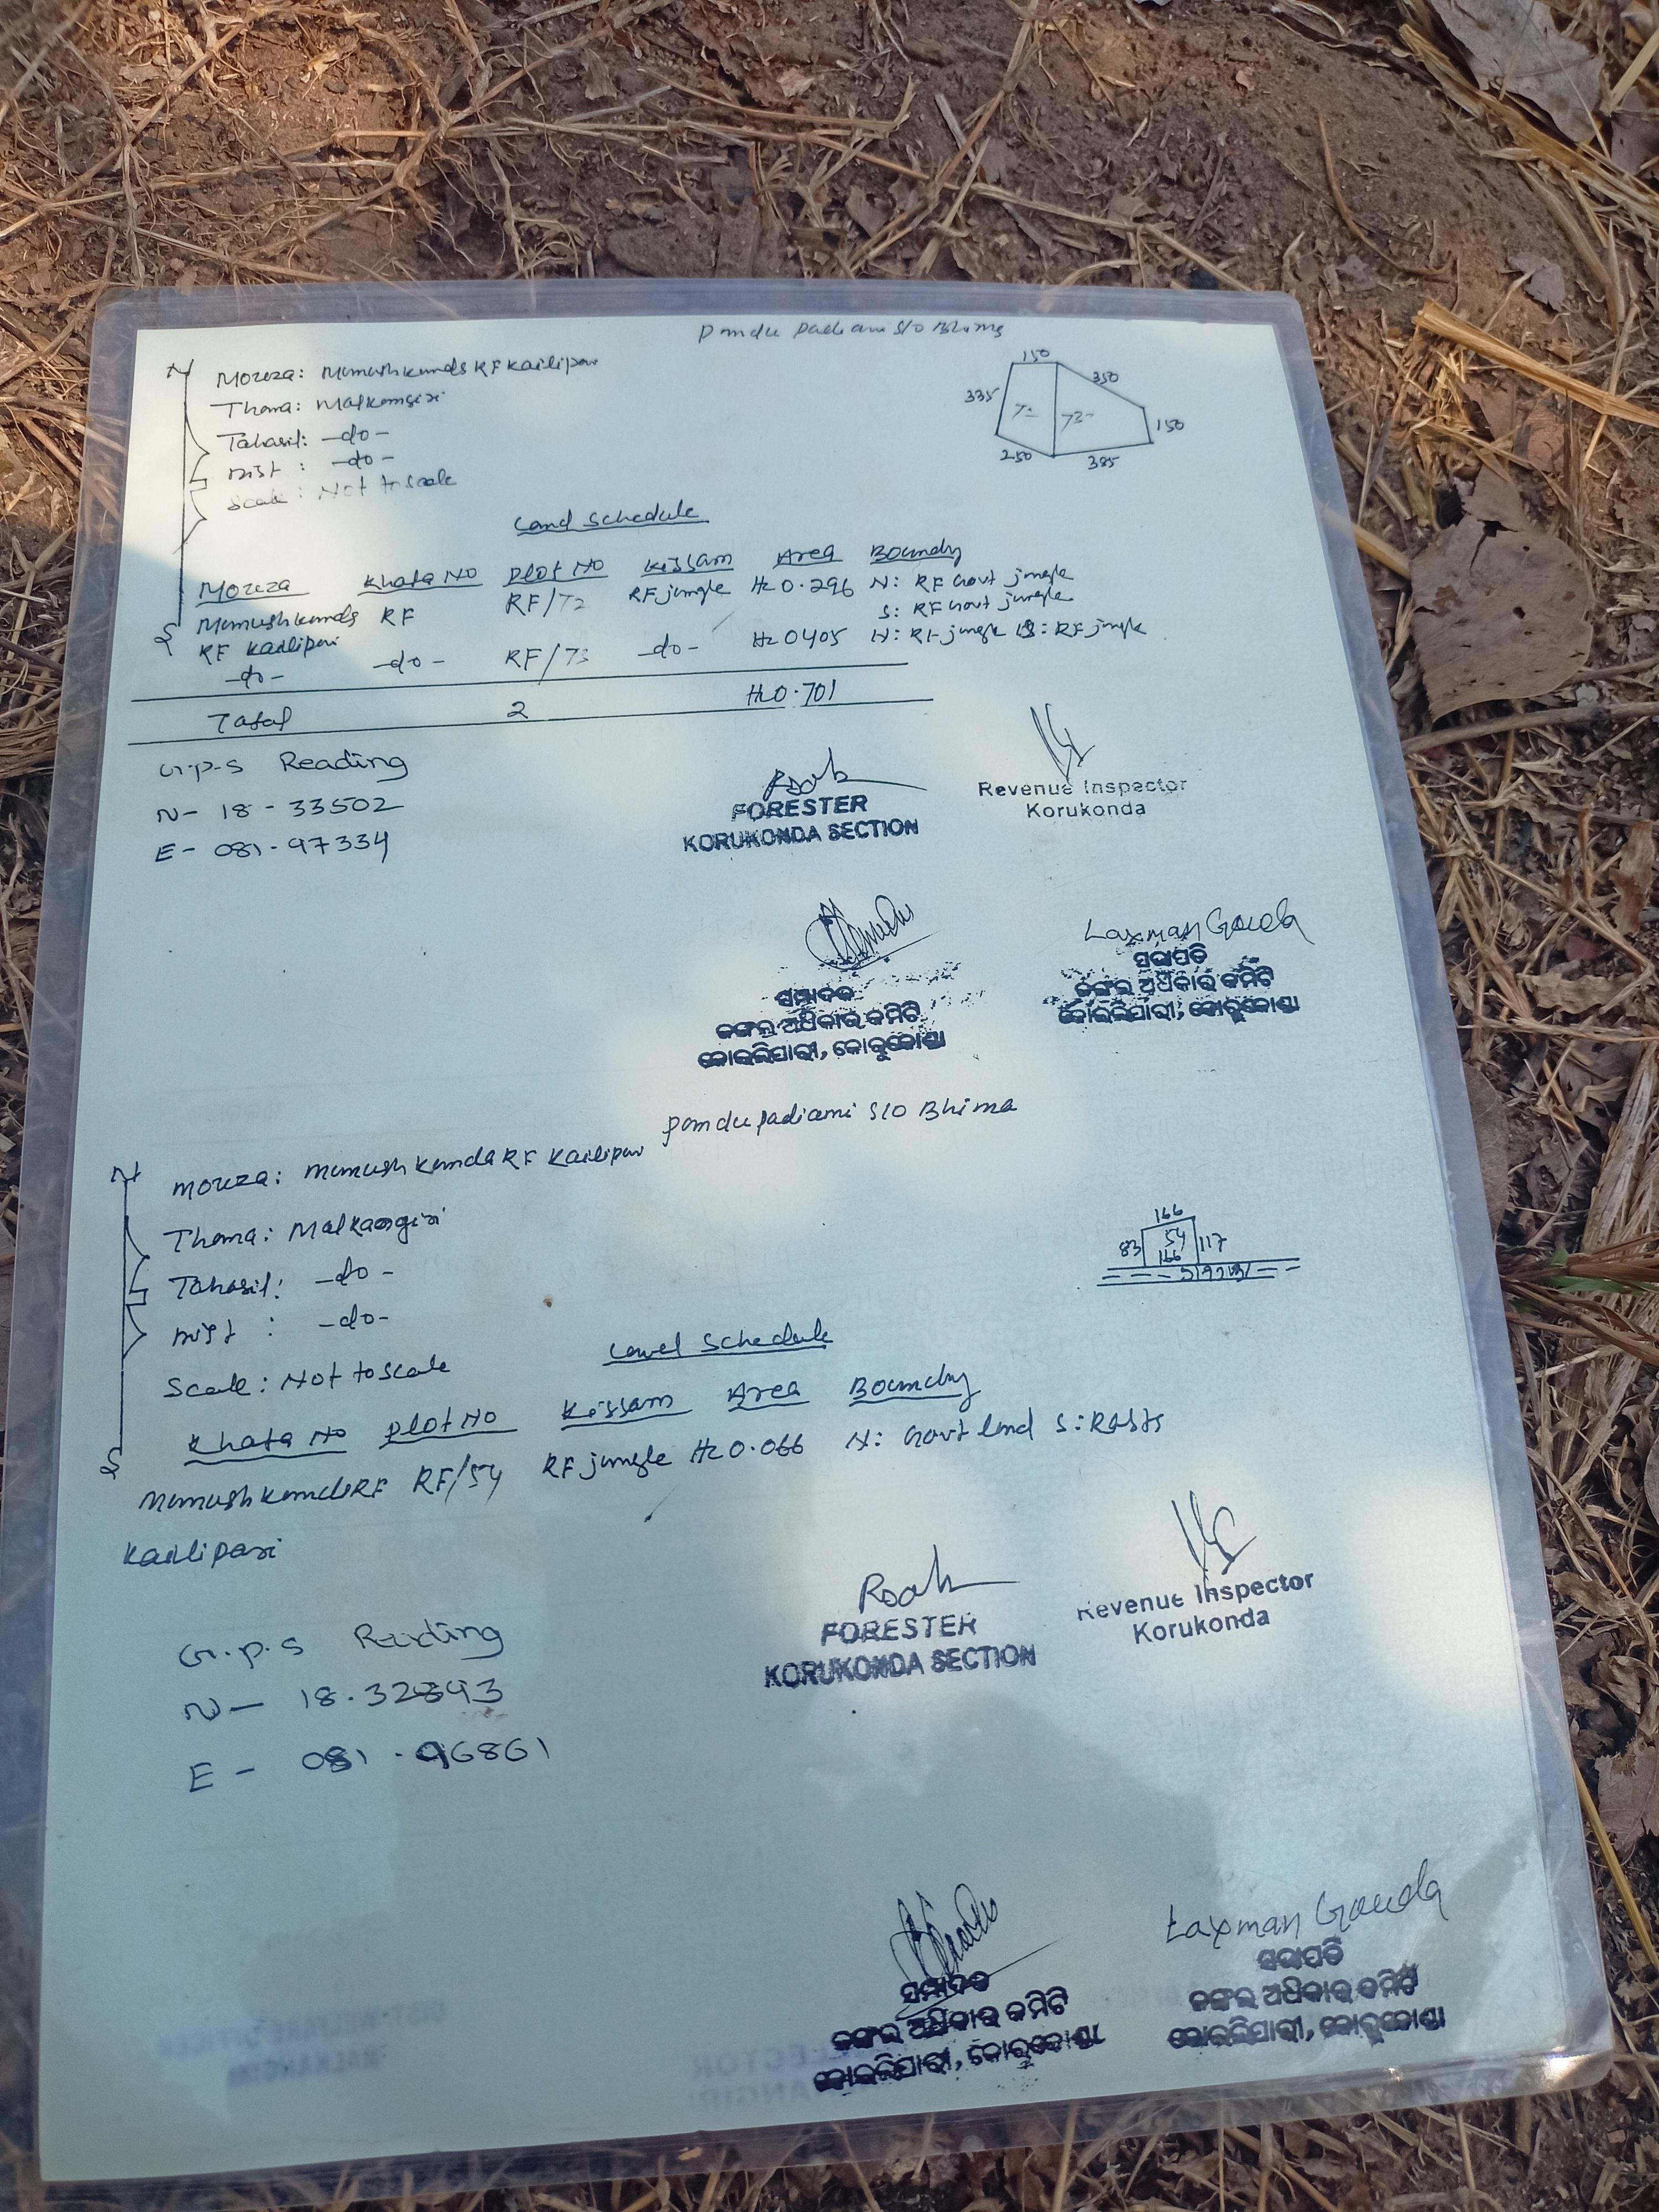 Pandu Padiami S/o Bhima
N
Mouza: Mamushkunda RF Kailipari
Thana: Malkangiri
Tahasil: -do-
Dist : -do-
Scale: Not to scale
S
150
335 72 73 350
150
250 385
Land Schedule
Mouza Khata No Plot No Kissam Area Boundry
Mamushkunda RF RF/72 RF jungle H 0.296 N: RF Govt jungle
RF Kailipari S: RF Govt jungle
-do- -do- RF/73 -do- H 0405 N: RF jungle S: RF jungle
Total 2 H 0.701
G.P.S Reading
N- 18-33502
E- 081-97334
FORESTER
KORUKONDA SECTION
Revenue Inspector
Korukonda
Laxman Gouda
ସମ୍ପାଦକ
ଜଙ୍ଗଲ ଅଧିକାର କମିଟି
କୋଇଲିପାରୀ, କୋରୁକୋଣ୍ଡା
ସଭାପତି
ଜଙ୍ଗଲ ଅଧିକାର କମିଟି
କୋଇଲିପାରୀ, କୋରୁକୋଣ୍ଡା
Pandu Padiami S/o Bhima
N
Mouza: Mamush Kunda RF Kailipari
Thana: Malkangiri
Tahasil: -do-
Dist : -do-
Scale: Not to scale
S
166
83 54 117
166
Land Schedule
Khata No Plot No Kissam Area Boundry
Mamushkunda RF RF/54 RF jungle H 0.066 N: Govt land S:
Kailipari
G.P.S Reading
N- 18.32893
E- 081.96861
FORESTER
KORUKONDA SECTION
Revenue Inspector
Korukonda
Laxman Gouda
ସମ୍ପାଦକ
ଜଙ୍ଗଲ ଅଧିକାର କମିଟି
କୋଇଲିପାରୀ, କୋରୁକୋଣ୍ଡା
ସଭାପତି
ଜଙ୍ଗଲ ଅଧିକାର କମିଟି
କୋଇଲିପାରୀ, କୋରୁକୋଣ୍ଡା